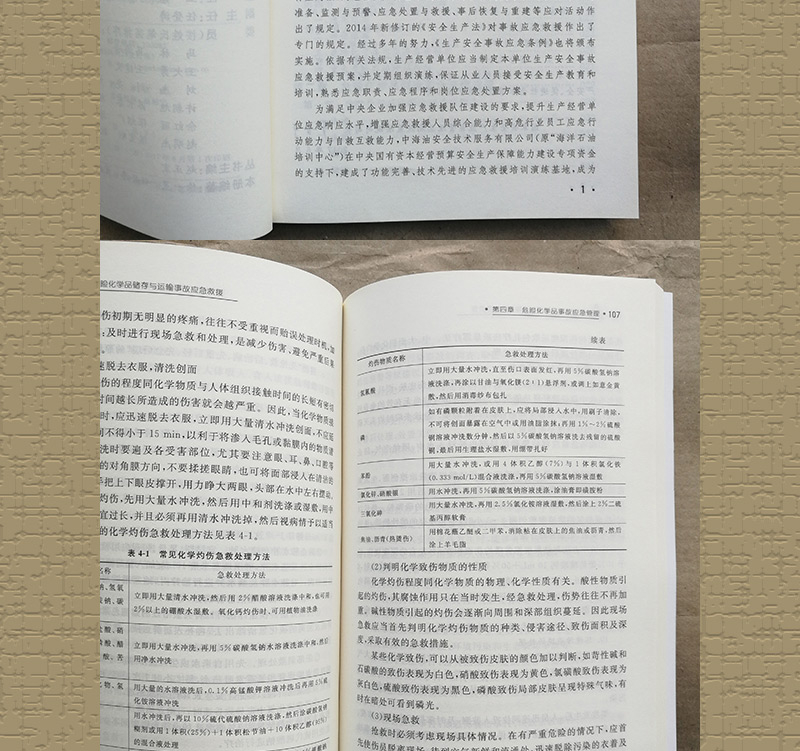 准备、监测与预警、应急处置与救援、事后恢复与重建等应对活动作
出了规定。2014年新修订的《安全生产法》对事故应急救援作出了
专门的规定。经过多年的努力,《生产安全事故应急条例》也将颁布
实施。依据有关法规,生产经营单位应当制定本单位生产安全事故
应急救援预案,并定期组织演练,保证从业人员接受安全生产教育和
培训,熟悉应急职责、应急程序和岗位应急处置方案。
为满足中央企业加强应急救援队伍建设的要求,提升生产经营单
位应急响应水平,增强应急救援人员综合能力和高危行业员工应急行
动能力与自救互救能力,中海油安全技术服务有限公司(原“海洋石油
培训中心”)在中央国有资本经营预算安全生产保障能力建设专项资金
的支持下,建成了功能完善、技术先进的应急救援培训演练基地,成为
· 1 ·
化学品储存与运输事故应急救援
伤初期无明显的疼痛,往往不受重视而贻误处理时机,加
;及时进行现场急救和处理,是减少伤害、避免严重后果
速脱去衣服,清洗创面
伤的程度同化学物质与人体组织接触时间的长短有密切
时间越长所造成的伤害就会越严重。因此,当化学物质接
时,应迅速脱去衣服,立即用大量清水冲洗创面,不应延
间不得小于15 min,以利于将渗入毛孔或黏膜内的物质清
洗时要遍及各受害部位,尤其要注意眼、耳、鼻、口腔等
的对角膜方向,不要揉搓眼睛,也可将面部浸入在清洁的
手把上下眼皮撑开,用力睁大两眼,头部在水中左右摆动。
灼伤,先用大量水冲洗,然后用中和剂洗涤或湿敷,用中
宜过长,并且必须再用清水冲洗掉,然后视病情予以适当
的化学灼伤急救处理方法见表4-1。
表4-1 常见化学灼伤急救处理方法
名称 急救处理方法
钠、氢氧 立即用大量清水冲洗,然后用2%醋酸溶液洗涤中和,也可用
2%以上的硼酸水湿敷。氧化钙灼伤时、可用植物油洗涤
盐酸、硝 立即用大量水冲洗,再用5%碳酸氢钠水溶液洗涤中和,然后
用净水冲洗
化物、氢 用大量的水溶液洗后,0.1%高锰酸钾溶液冲洗后再用5%硫
化铵溶液冲洗
用水冲洗后,再以10%硫代硫酸钠溶液洗涤,然后涂碳酸氢钠
糊剂或用1体积(25%)+1体积松节油+10体积乙醇(95%)
的混合液处理
第四章 危险化学品事故应急管理 · 107
续表
灼伤物质名称 急救处理方法
氢氟酸 立即用大量水冲洗,直至伤口表面发红,再用5%碳酸氢钠溶
液洗涤,再涂以甘油与氧化镁(2+1)悬浮剂,或调上如意金黄
散,然后用消毒纱布包扎
磷 如有磷颗粒附着在皮肤上,应将局部浸入水中,用刷子清除,
不可将创面暴露在空气中或用油脂涂抹;再用1%~2%硫酸
铜溶液冲洗数分钟,然后以5%碳酸氢钠溶液洗去残留的硫酸
铜,最后用生理盐水湿敷,用绷带扎好
苯酚 用大量水冲洗,或用4体积乙醇(7%)与1体积氯化铁
(0.333 mol/L)混合液洗涤,再用5%碳酸氢钠溶液湿敷
氯化锌、硝酸银 用水冲洗,再用5%碳酸氢钠溶液洗涤,涂油膏即磺胺粉
三氯化砷 用大量水冲洗,再用2.5%氯化铵溶液湿敷,然后涂上2%二硫
基丙醇软膏
焦油、沥青(热烫伤) 用棉花蘸乙醚或二甲苯,消除粘在皮肤上的焦油或沥青,然后
涂上羊毛脂
(2)判明化学致伤物质的性质
化学灼伤程度同化学物质的物理、化学性质有关。酸性物质引
起的灼伤,其腐蚀作用只在当时发生,经急救处理,伤势往往不再加
重。碱性物质引起的灼伤会逐渐向周围和深部组织蔓延。因此现场
急救应当首先判明化学灼伤物质的种类、侵害途径、致伤面积及深
度,采取有效的急救措施。
某些化学致伤,可以从被致伤皮肤的颜色加以判断,如苛性碱和
石碳酸的致伤表现为白色,硝酸致伤表现为黄色,氯磺酸致伤表现为
灰白色,硫酸致伤表现为黑色,磷酸致伤局部皮肤呈现特殊气味,有
时在暗处可看到磷光。
(3)现场急救
抢救时必须考虑现场具体情况。在有严重危险的情况下,应首